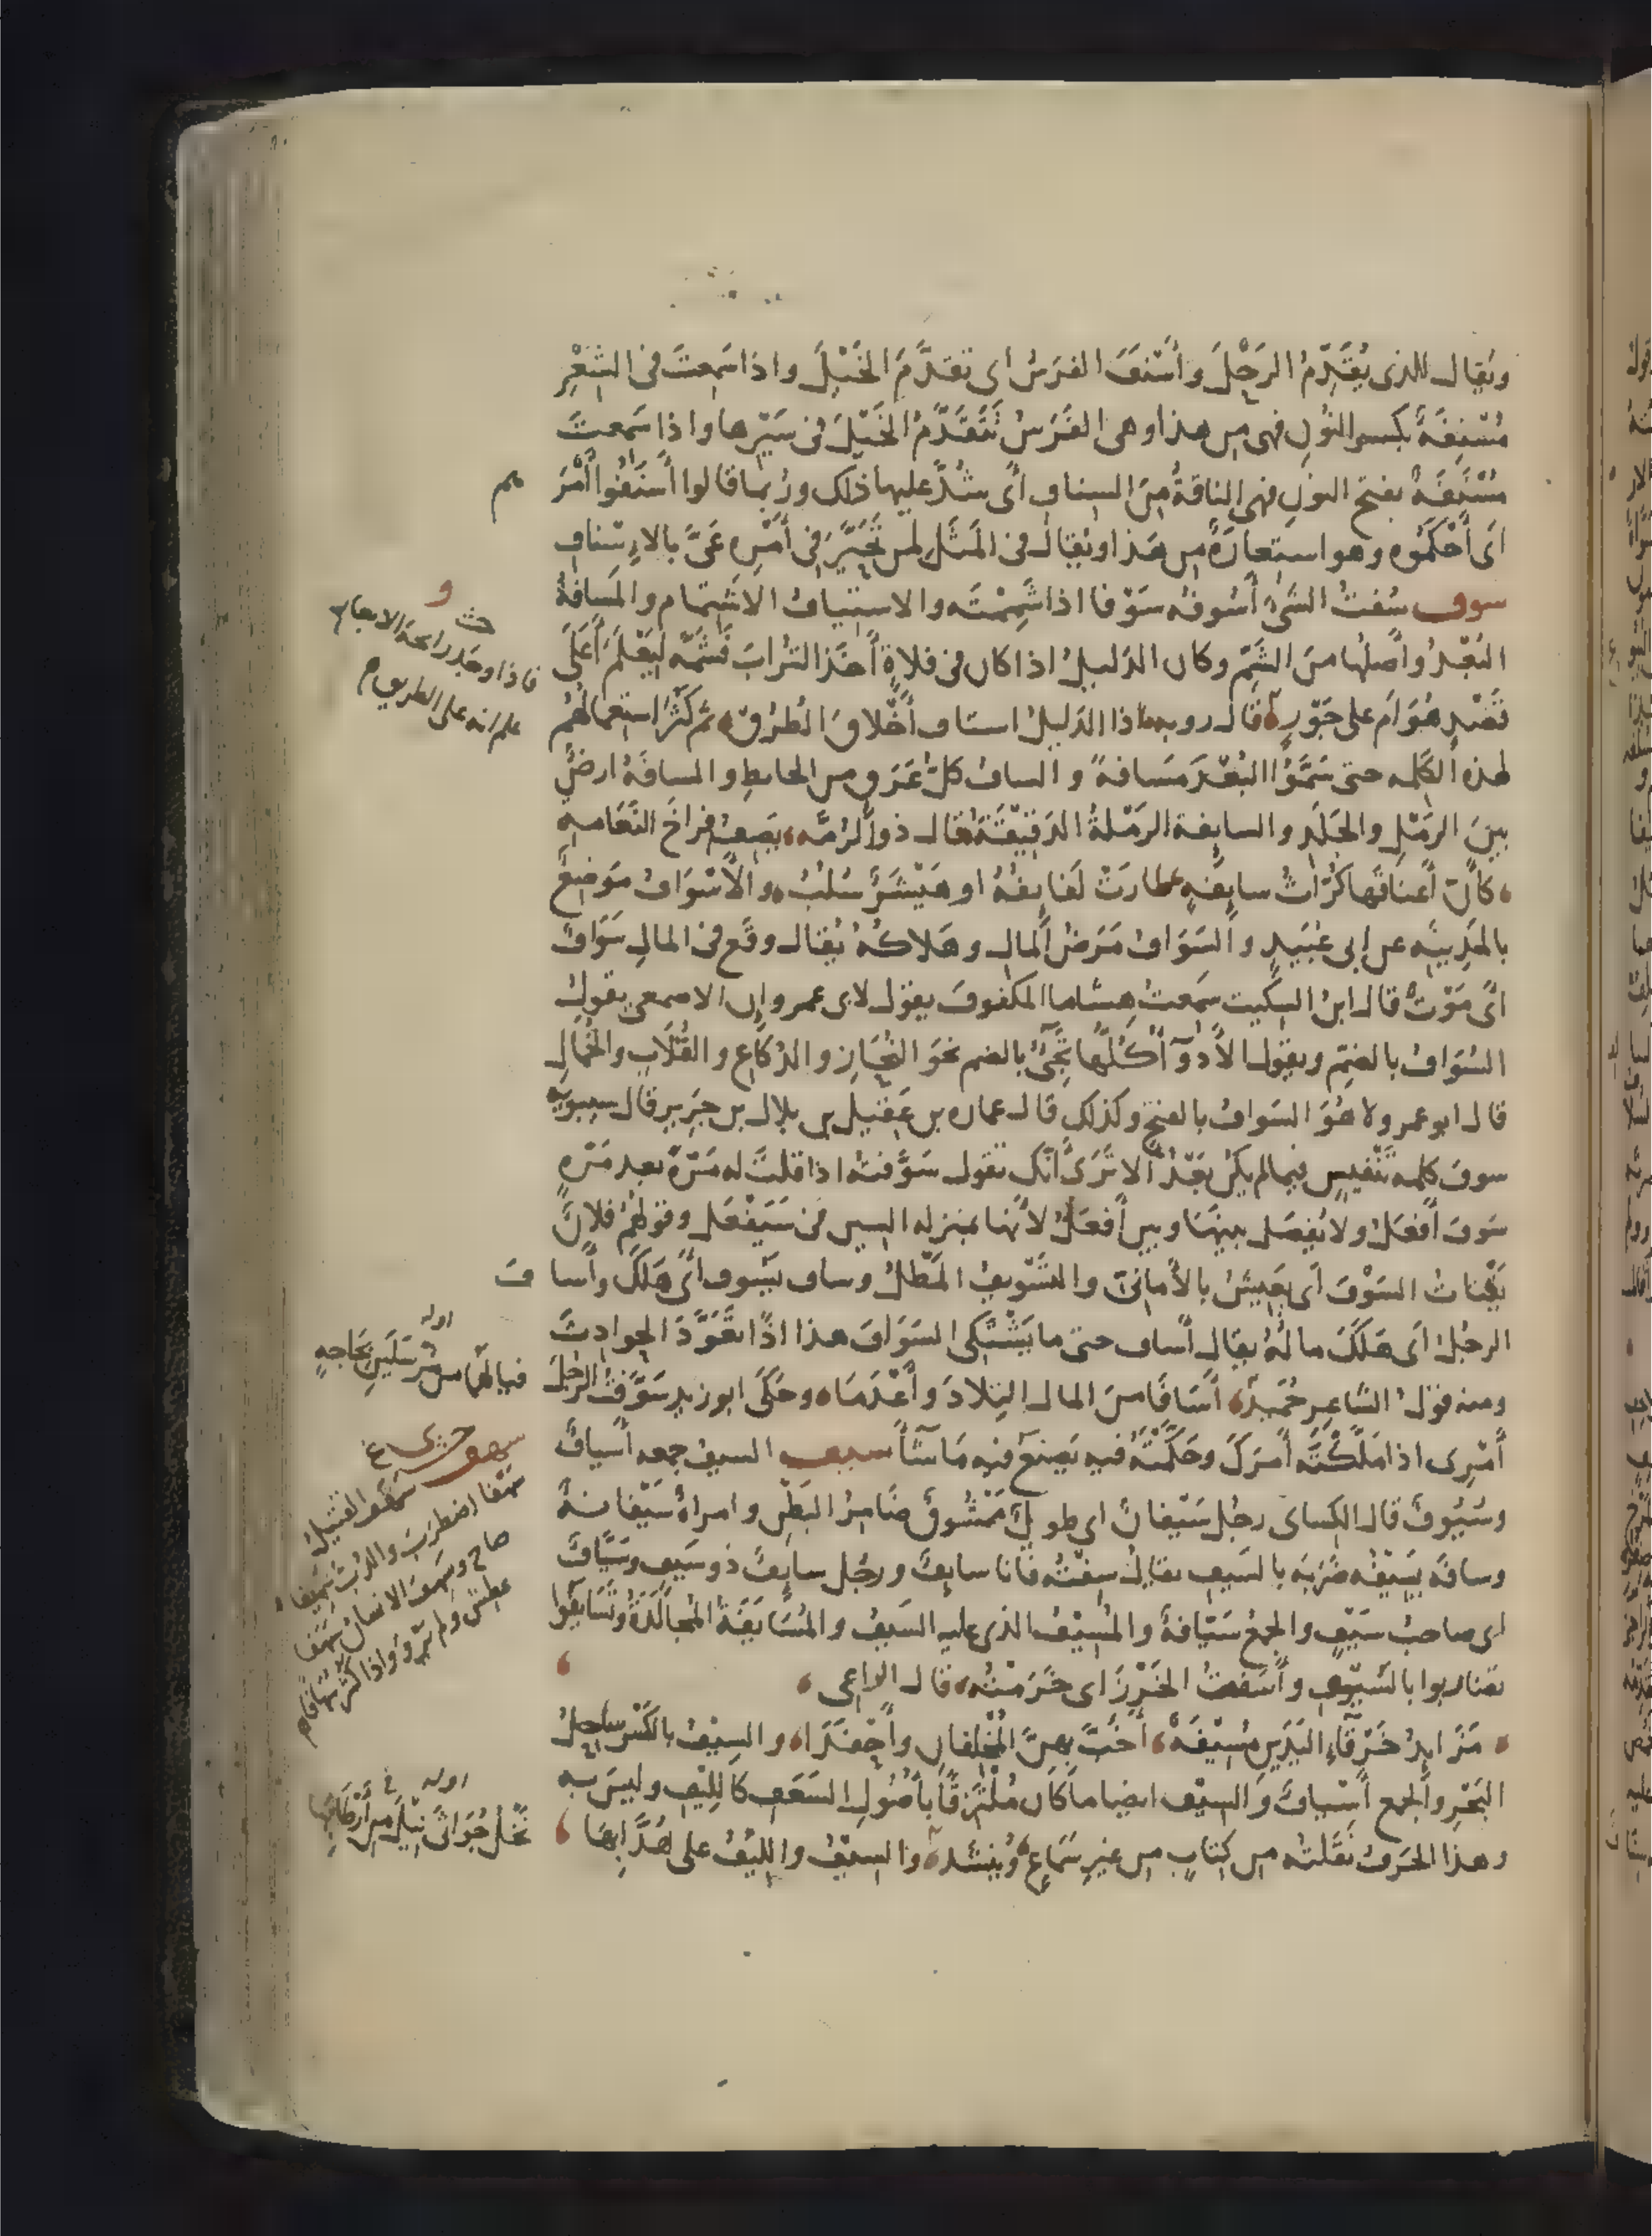 ويقال للذى يُقَدِّمُ الرَحْلَ وأَسْنَفَ الفرَسُ اى تقدَّمَ الخَيْلَ واذا سَمِعتَ فى الشِعْرِ
مُسْنِفَةً بكسر النُونِ فهى مِن هذا وهى الفَرَسُ تَتَقَدَّمُ الخَيْلَ فى سَيْرِها واذا سَمِعتَ
مُسْنَفَةً بفتح النونِ فهى الناقةُ مِنَ السِنافِ أى شُدَّ عليها ذلك ورُبما قالوا أَسنَفُوا أَمْرَ هم
اى أَحْكَمُوه وهو استِعارَةٌ مِن هَذا ويُقال فى المَثَلِ لمن تَحَيَّرَ فى أَمْرِه عَىَّ بالاِسْنافِ
سوف سُفتُ الشَىْ أَسُوفُه سَوْفا اذا شَمِمْتَه والاستِيافُ الاشْتِمام والمَسافةُ
البُعْدُ وأَصلُها مِنَ الشَمِّ وكان الدَليلُ اذا كان فى فلاةٍ أَخذ التُرابَ فشَمَّه لِيَعْلَمَ أَعَلَى
قَصْدٍ هُوَ أَم على جَوْرٍ قال روبه اذا الدَليلُ استاف أَخْلاقَ الطُرُقْ ثم كَثُرَ استِعمالُهُم
لهذه الكَلِمه حتى سَمَّوُا البُعْدَ مَسافةً والسافُ كلُّ عَرَقٍ من الحائطِ والمسافَةُ ارضٌ
بينَ الرَمْلِ والجَلَدِ والسايفة الرَمْلةُ الدَقيقَةُ قال ذو الرُمّه يَصِفُ فِراخَ النَعَامهِ
كأَنّ أَعناقَها كُرّاثُ سايِفَةٍ طارَتْ لَفايِفُهُ او هَيْشَرٌ سُلُبُ والأَسْوَافُ مَوضِعٌ
بالمَدِينَه عن ابى عُبَيدٍ والسَوَافُ مَرَضُ المالِ وهَلاكُهُ يُقال وقَع فى المالِ سَوَافٌ
اى مَوْتٌ قال ابنُ السِكّيت سَمِعتُ هِشاما المكفوفَ يقول لابى عمرو إن الاصمعى يقولُ
السُوَافُ بالضمِّ ويقول الأَدْوَآ كُلُّها تَجِىُ بالضم نحوَ النُحَازِ والدُكَاعِ والقُلَابِ والخُمالِ
قال ابو عمرو لا هُوَ السَوافُ بالفتح وكذلك قال عماره بن عَقيل بن بلال بن جَرِيرٍ قال سيبويه
سوفَ كلِمه تَنْفِيسٍ فيما لم يكن بَعْدُ الا تَرَى أَنّك تقول سَوَّفتُه اذا قلتَ له مَرّةً بعد مَرّه
سَوفَ أَفعَلُ ولا يُفصَل بينَها وبين أَفعَلُ لأَنها بمنزله السين فى سَيَفْعَل وقولُهم فلانٌ
يَقْتاتُ السَوْفَ اى يَعِيشُ بالأَمانِىّ والتَسْوِيفُ المَطْلُ وساف يَسُوفُ اى هَلَكَ وأَسا فَ
الرجُلُ اى هَلَكَ مالُهُ يقال أَساف حتى ما يَشْتَكِى السَوَافَ هذا اذا تَعَوَّدَ الحوادِثَ
ومنه قول الشاعِر حُمَيدٌ أَسَافَا مِنَ المال التِلادَ وأَعْدَمَا وحَكَى ابو زيدٍ سَوَّفتُ الرَجُلَ
أَمْرِى اذا مَلَّكْتَه أَمرَكَ وحَكَّمْتَهُ فيه يَصنَع فيه مَا شآ سيف السيفُ جمعه أَسيافٌ
وسُيُوفٌ قال الكِساى رجُل سَيْفانٌ اى طويلٌ مَمْشُوقٌ ضَامِرُ البَطْنِ وامراةٌ سَيْفانةٌ
وسافَه يَسِيْفُه ضَرَبَه بالسَيف يقال سِفْتُه فانا سايِفٌ ورجُل سايِفٌ ذو سَيفٍ وسَيَّافٌ
اى صاحبُ سَيْفٍ والجمعُ سَيَّافةٌ والمُسِيْفُ الذى عليه السَيفُ والمُسَايَفَةُ المُجالَدَةُ وتَسَايَفُوا
تضاربوا بالسُيوفِ وأَسَفتُ الخَرْزَ اى خَرَمْتُه قال الراعى
مَزَايِدُ خَرْقَاءِ اليَدَينِ مُسِيْفَةٍ أَخَبَّ بِهِنَّ المُخْلِفانِ وأَحْفَدَا والسِيْفُ بالكسْر ساحِلُ
البَحْرِ والجمع أَسْيافٌ والسِيْف ايضا ما كان مُلْتَزِقًا بأُصُولِ السَعَفِ كاللِيْفِ وليسَ به
وهذا الحَرفُ نَقَلتُه مِن كِتابٍ مِن غيرِ سَماعٍ ويُنشَد والسِيْفُ واللِيْفُ على هُدَّابِها
حث
فاذا وجد رايحة الابعار
علم انه على الطريق
اوله
فيالَهُما من مُرْسَلَينِ بحَاجةٍ
سهف
عطِش ولم يَرْوَ واذا كَثُر
اوله
نَخْلُ جُوَاثَى نِيْلَ مِن أَرْطَابِها